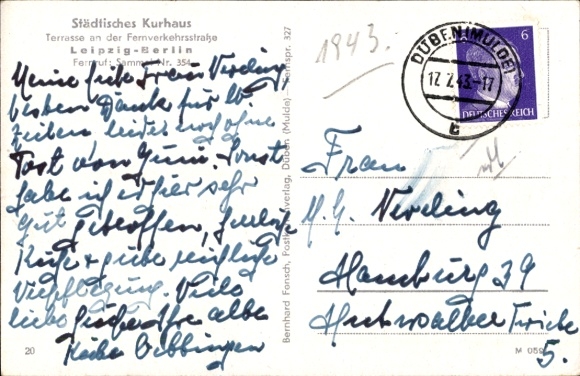 Städtisches Kurhaus
Terrasse an der Fernverkehrsstraße
Leipzig-Berlin
Fernruf: Sammel-Nr. 354
Meine liebe Frau Nerding
besten Dank für
Zeilen leider noch ohne
Post von Sonst
habe ich es hier sehr
gut getroffen, herrliche
Ruhe + gute reichliche
Verpflegung. Viele
liebe Grüße Ihre alte
Käthe
20
Bernhard Fensch, Postkartenverlag, Düben (Mulda) — Fernspr. 327
1943.
DÜBEN (MULDE)
17.7.43.-17
b
6
DEUTSCHES REICH
Frau
M. G. Nerding
Hamburg 39
5.
M 059